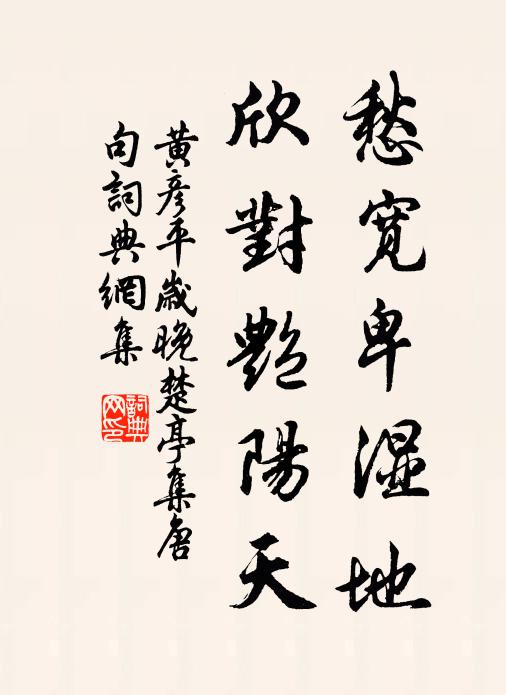 愁寬卑湿地
欣對艷陽天
黃彥平歲晚楚亭集唐
句詞典網集
詞典網印